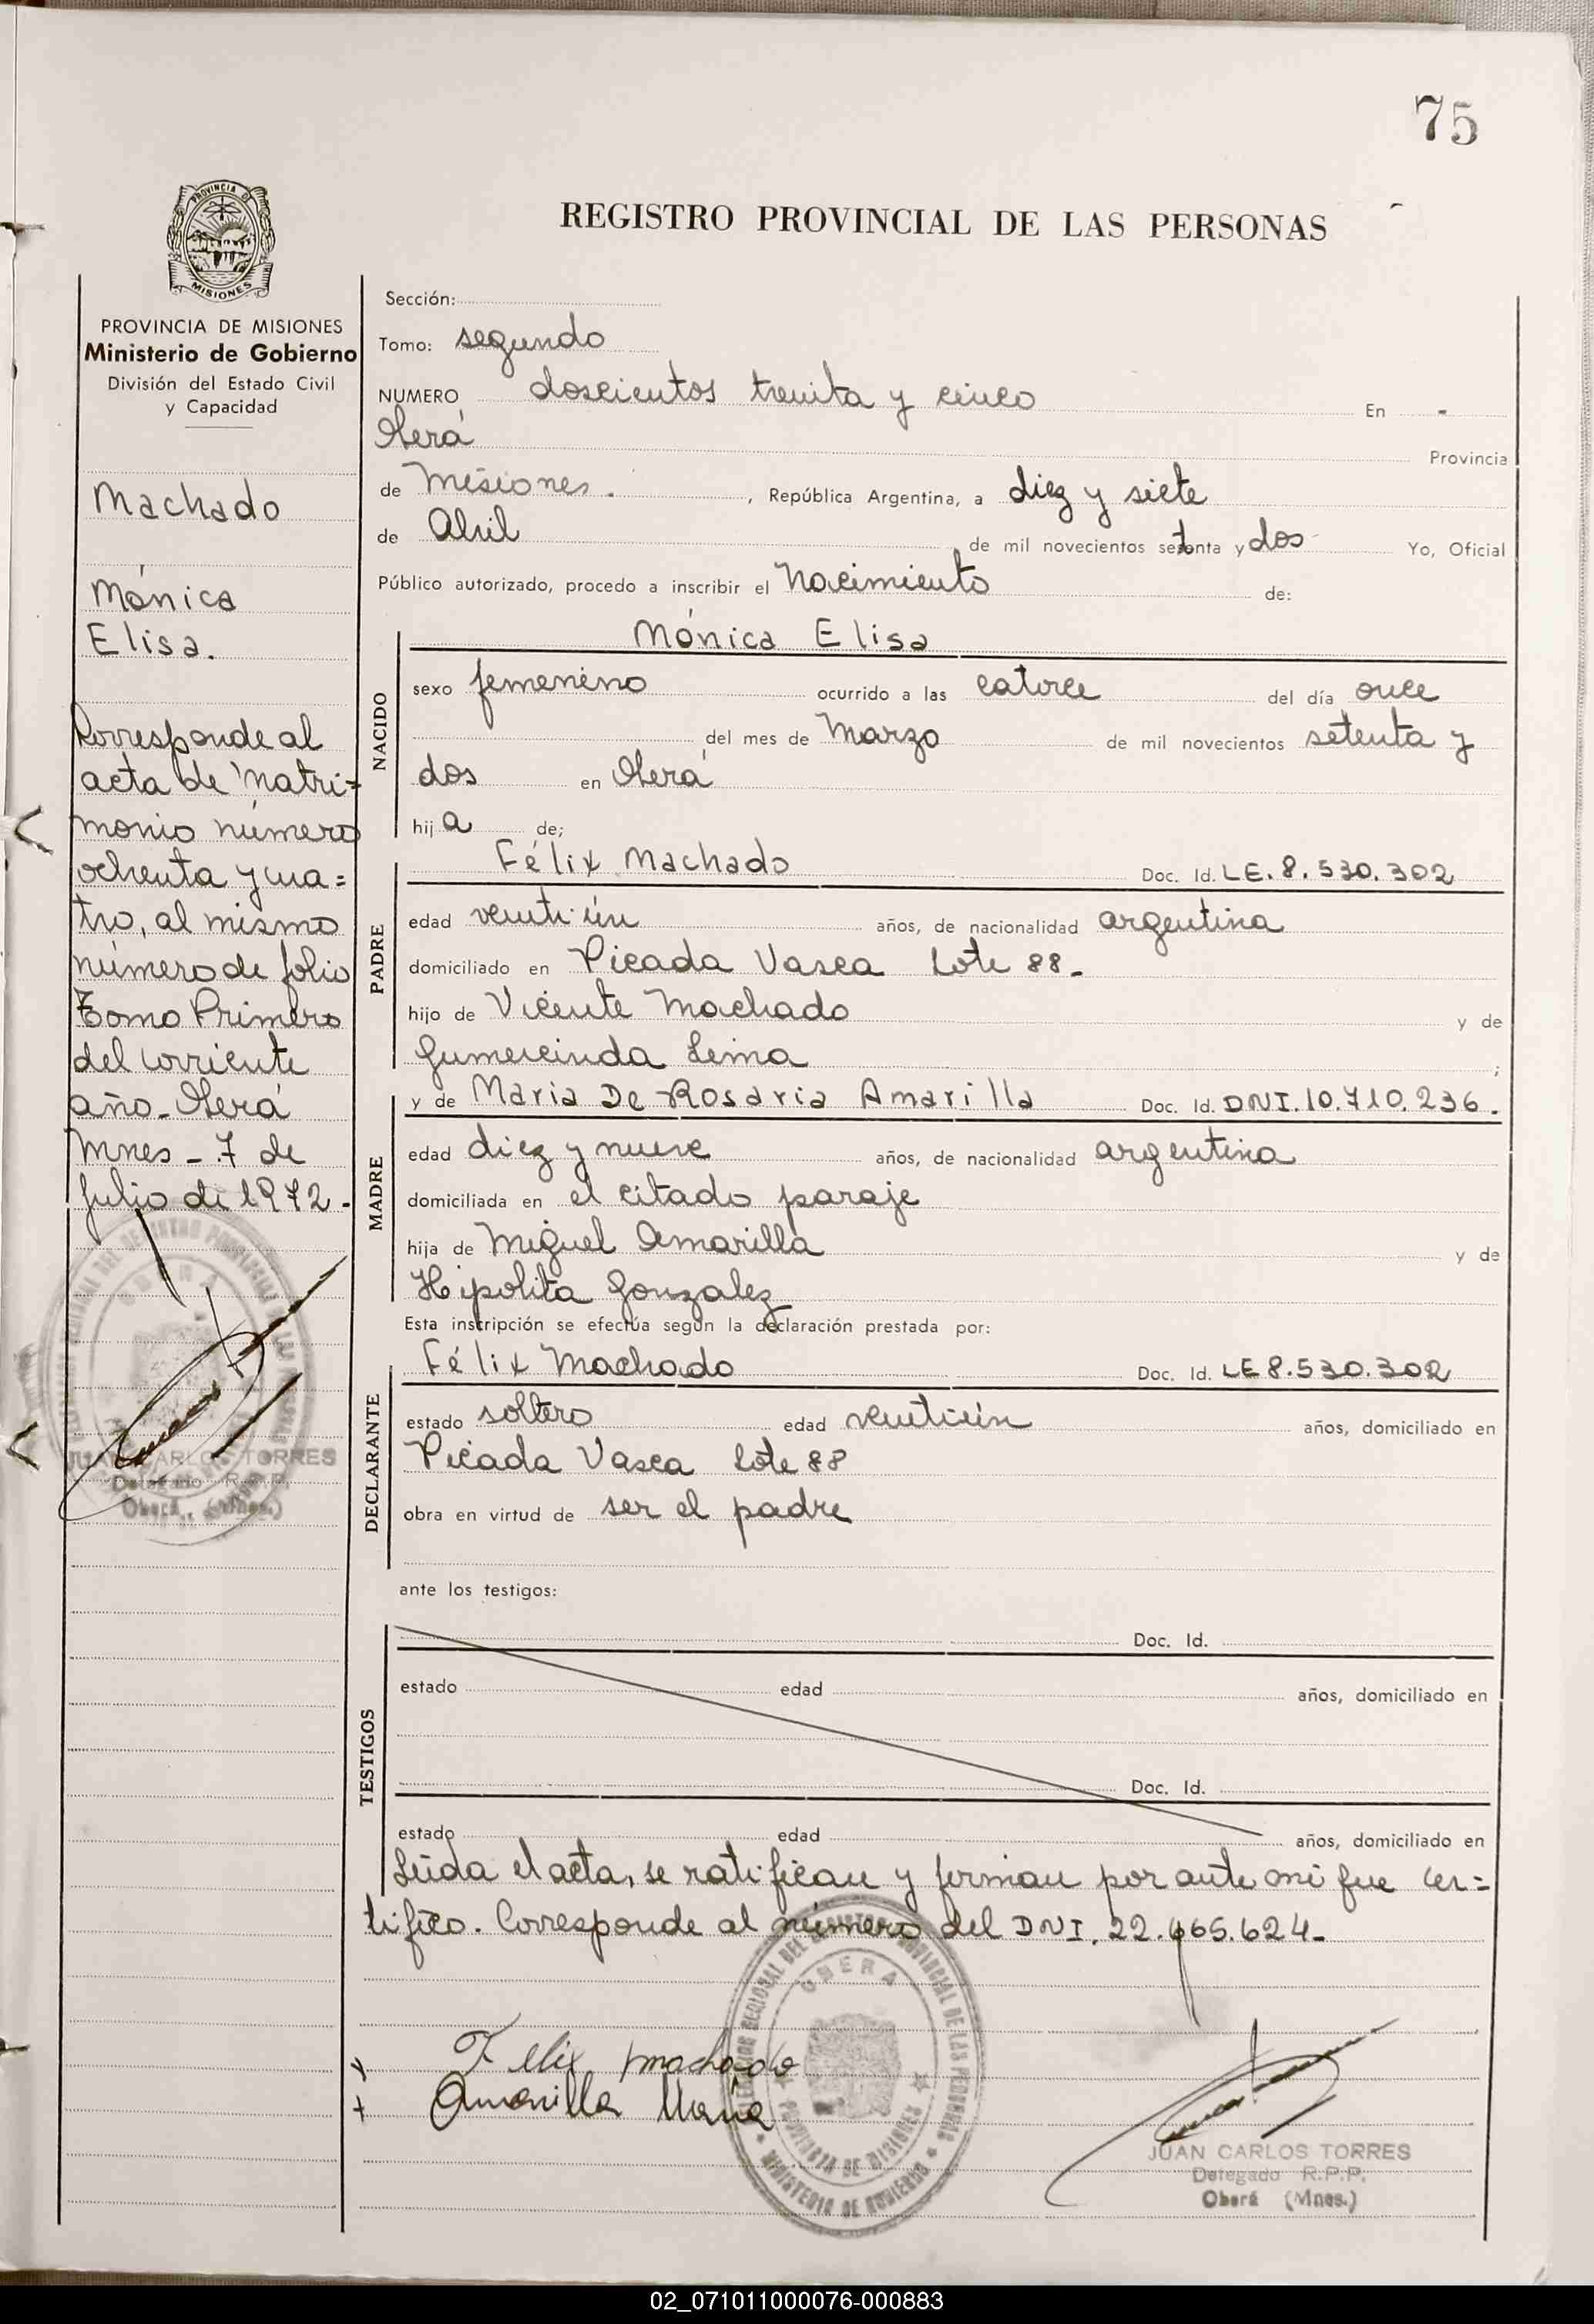 75
PROVINCIA DE
MISIONES
REGISTRO PROVINCIAL DE LAS PERSONAS
PROVINCIA DE MISIONES
Ministerio de Gobierno
División del Estado Civil
y Capacidad
Machado
Mónica
Elisa.
Corresponde al
acta de Matri=
monio número
ochenta y cua=
tro, al mismo
número de folio
Tomo Primero
del corriente
año. Oberá
Mnes - 7 de
Julio de 1972.
OBERA
JUAN CARLOS TORRES
Delegado R.P.P.
Oberá, (Mnes.)
Sección:
Tomo: segundo
NUMERO doscientos treinta y cinco En -
Oberá Provincia
de Misiones. , República Argentina, a diez y siete
de Abril de mil novecientos setenta y dos Yo, Oficial
Público autorizado, procedo a inscribir el Nacimiento de:
NACIDO
Mónica Elisa
sexo femenino ocurrido a las catorce del día once
del mes de Marzo de mil novecientos setenta y
dos en Oberá
hij a de;
PADRE
Félix Machado Doc. Id. LE. 8.530.302
edad veinti ún años, de nacionalidad argentina
domiciliado en Picada Vasca Lote 88.
hijo de Vicente Machado y de
Gumercinda Leina ;
MADRE
y de Maria De Rosaria Amarilla Doc. Id. DNI. 10.710.236.
edad diez y nueve años, de nacionalidad argentina
domiciliada en el citado paraje
hija de Miguel Amarilla y de
Hipolita Gonzalez
Esta inscripción se efectúa según la declaración prestada por:
DECLARANTE
Félix Machado Doc. Id. LE 8.530.302
estado soltero edad veintiún años, domiciliado en
Picada Vasca Lote 88
obra en virtud de ser el padre
ante los testigos:
TESTIGOS
Doc. Id.
estado edad años, domiciliado en
Doc. Id.
estado edad años, domiciliado en
Leída el acta, se ratifican y firman por ante mi que cer=
tifico. Corresponde al número del DNI. 22.465.624.
OBERA
PROVINCIA DE MISIONES
MINISTERIO DE GOBIERNO
Felix machado
Amarilla Maria
JUAN CARLOS TORRES
Delegado R.P.P.
Oberá (Mnes.)
02_071011000076-000883